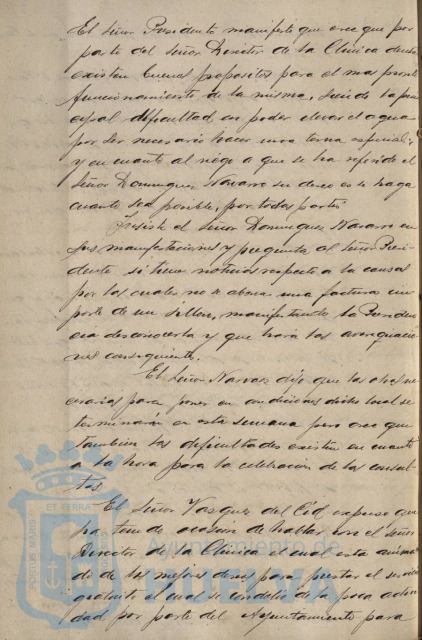 El Señor Presidente manifestó que cree que por
parte del Señor Director de la Clínica deben
existir buenos propositos para el mas pronto
funcionamiento de la misma, siendo la prin
cipal dificultad en poder elevar el agua
por ser necesario hacer una toma especial
y en cuanto al riego a que se ha referido el
Señor Dominguez Navarro su deseo es se haga
cuanto sea posible, por todas partes.
Insiste el Señor Dominguez Navarro en
sus manifestaciones y pregunta al Señor Presi
dente si tiene noticias respecto a la causas
por las cuales no se abona una factura im
porte de un sillon, manifestando la Presiden
cia desconocerla y que hará las averiguacio
nes consiguiente.
El Señor Narvaez dijo que las obras ne
cesarias para poner en condiciones dicho local se
terminarán en esta semana pero cree que
tambien las dificultades existen en cuanto
a la hora para la celebracion de las consul
tas.
El Señor Vazquez del Cid expuso que
ha tenido ocasión de hablar con el Señor
Director de la Clínica el cual está anima
do de los mejores deseos para prestar el servicio
gratuito el cual se condolia de la poca activi
dad por parte del Ayuntamiento para
PORTUS MARIS
ET TERRÆ
Ayuntamiento de
HUELVA